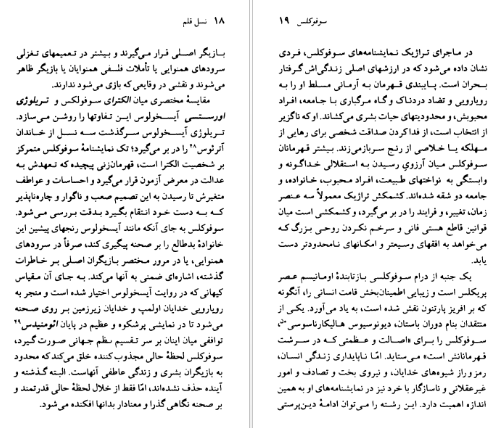 ۱۸ نسل قلم
بازیگر اصلی قرار می‌گیرند و بیشتر در تعمیمهای تغزلی
سرودهای همنوایی یا تأملات فلسفی همنوایان یا بازیگر ظاهر
می‌شوند و نقشی در وقایعی که بازی می‌شود ندارند.
مقایسهٔ مختصری میان الکترای سوفوکلس و تریلوژی
اورستسی آیسخولوس این تفاوتها را روشن می‌سازد.
تریلوژی آیسخولوس سرگذشت سه نسل از خاندان
آترئوس۲۸ را در بر می‌گیرد؛ تک نمایشنامهٔ سوفوکلس متمرکز
بر شخصیت الکترا است، قهرمان‌زنی پیچیده که تعهدش به
عدالت در معرض آزمون قرار می‌گیرد و احساسات و عواطف
متغیرش تا رسیدن به این تصمیم صعب و ناگوار و چاره‌ناپذیر
که به دست خود انتقام بگیرد بدقت بررسی می‌شود.
سوفوکلس به جای آنکه مانند آیسخولوس رنجهای پیشین این
خانوادهٔ بدطالع را بر صحنه پیگیری کند، صرفاً در سرودهای
همنوایی، یا در مرور مختصر بازیگران اصلی بر خاطرات
گذشته، اشاره‌ای ضمنی به آنها می‌کند. به جای آن مقیاس
کیهانی که در روایت آیسخولوس اختیار شده است و منجر به
رویارویی خدایان اولمپ و خدایان زیرزمین بر روی صحنه
می‌شود تا در نمایشی پرشکوه و عظیم در پایان ائومنیدس۲۹
توافقی میان اینان بر سر تقسیم نظم جهانی صورت گیرد،
سوفوکلس لحظهٔ حالی مجذوب کننده خلق می‌کند که محدود
به بازیگران بشری و زندگی عاطفی آنهاست. البته گذشته و
آینده حذف نشده‌اند، امّا فقط از خلال لحظهٔ حالی قدرتمند و
بر صحنه نگاهی گذرا و معنادار بدانها افکنده می‌شود.
سوفوکلس ۱۹
در ماجرای تراژیک نمایشنامه‌های سوفوکلس، فردی
نشان داده می‌شود که در ارزشهای اصلی زندگی‌اش گرفتار
بحران است. پایبندی قهرمان به آرمانی مسلط او را به
رویارویی و تضاد دردناک و گاه مرگباری با جامعه، افراد
محبوبش، و محدودیتهای حیات بشری می‌کشاند. او که ناگزیر
از انتخاب است، از فدا کردن صداقت شخصی برای رهایی از
مهلکه یا خلاصی از رنج سرباز می‌زند. بیشتر قهرمانان
سوفوکلس میان آرزوی رسیدن به استقلالی خداگونه و
وابستگی به نواختهای طبیعت، افراد محبوب، خانواده، و
جامعه دو شقه شده‌اند. کشمکش تراژیک معمولاً سه عنصر
زمان، تغییر، و فرایند را در بر می‌گیرد، و کشمکشی است میان
قوانین قاطع هستی فانی و سرخم نکردن روحی بزرگ که
می‌خواهد به افقهای وسیعتر و امکانهای نامحدودتر دست
یابد.
یک جنبه از درام سوفوکلسی بازتابندهٔ اومانیسم عصر
پریکلس است و زیبایی اطمینان‌بخش قامت انسانی را، آنگونه
که بر افریز پارتنون نقش شده است، به یاد می‌آورد. یکی از
منتقدان بنام دوران باستان، دیونوسیوس هالیکارناسوسی۳۰،
سوفوکلس را برای «اصالت و عظمتی که در سرشت
قهرمانانش است» می‌ستاید. امّا ناپایداری زندگی انسان،
رمز و راز شیوه‌های خدایان، و نیروی بخت و تصادف و امور
غیرعقلانی و ناسازگار با خرد نیز در نمایشنامه‌های او به همین
اندازه اهمیت دارد. این رشته را می‌توان ادامهٔ دین‌پرستی